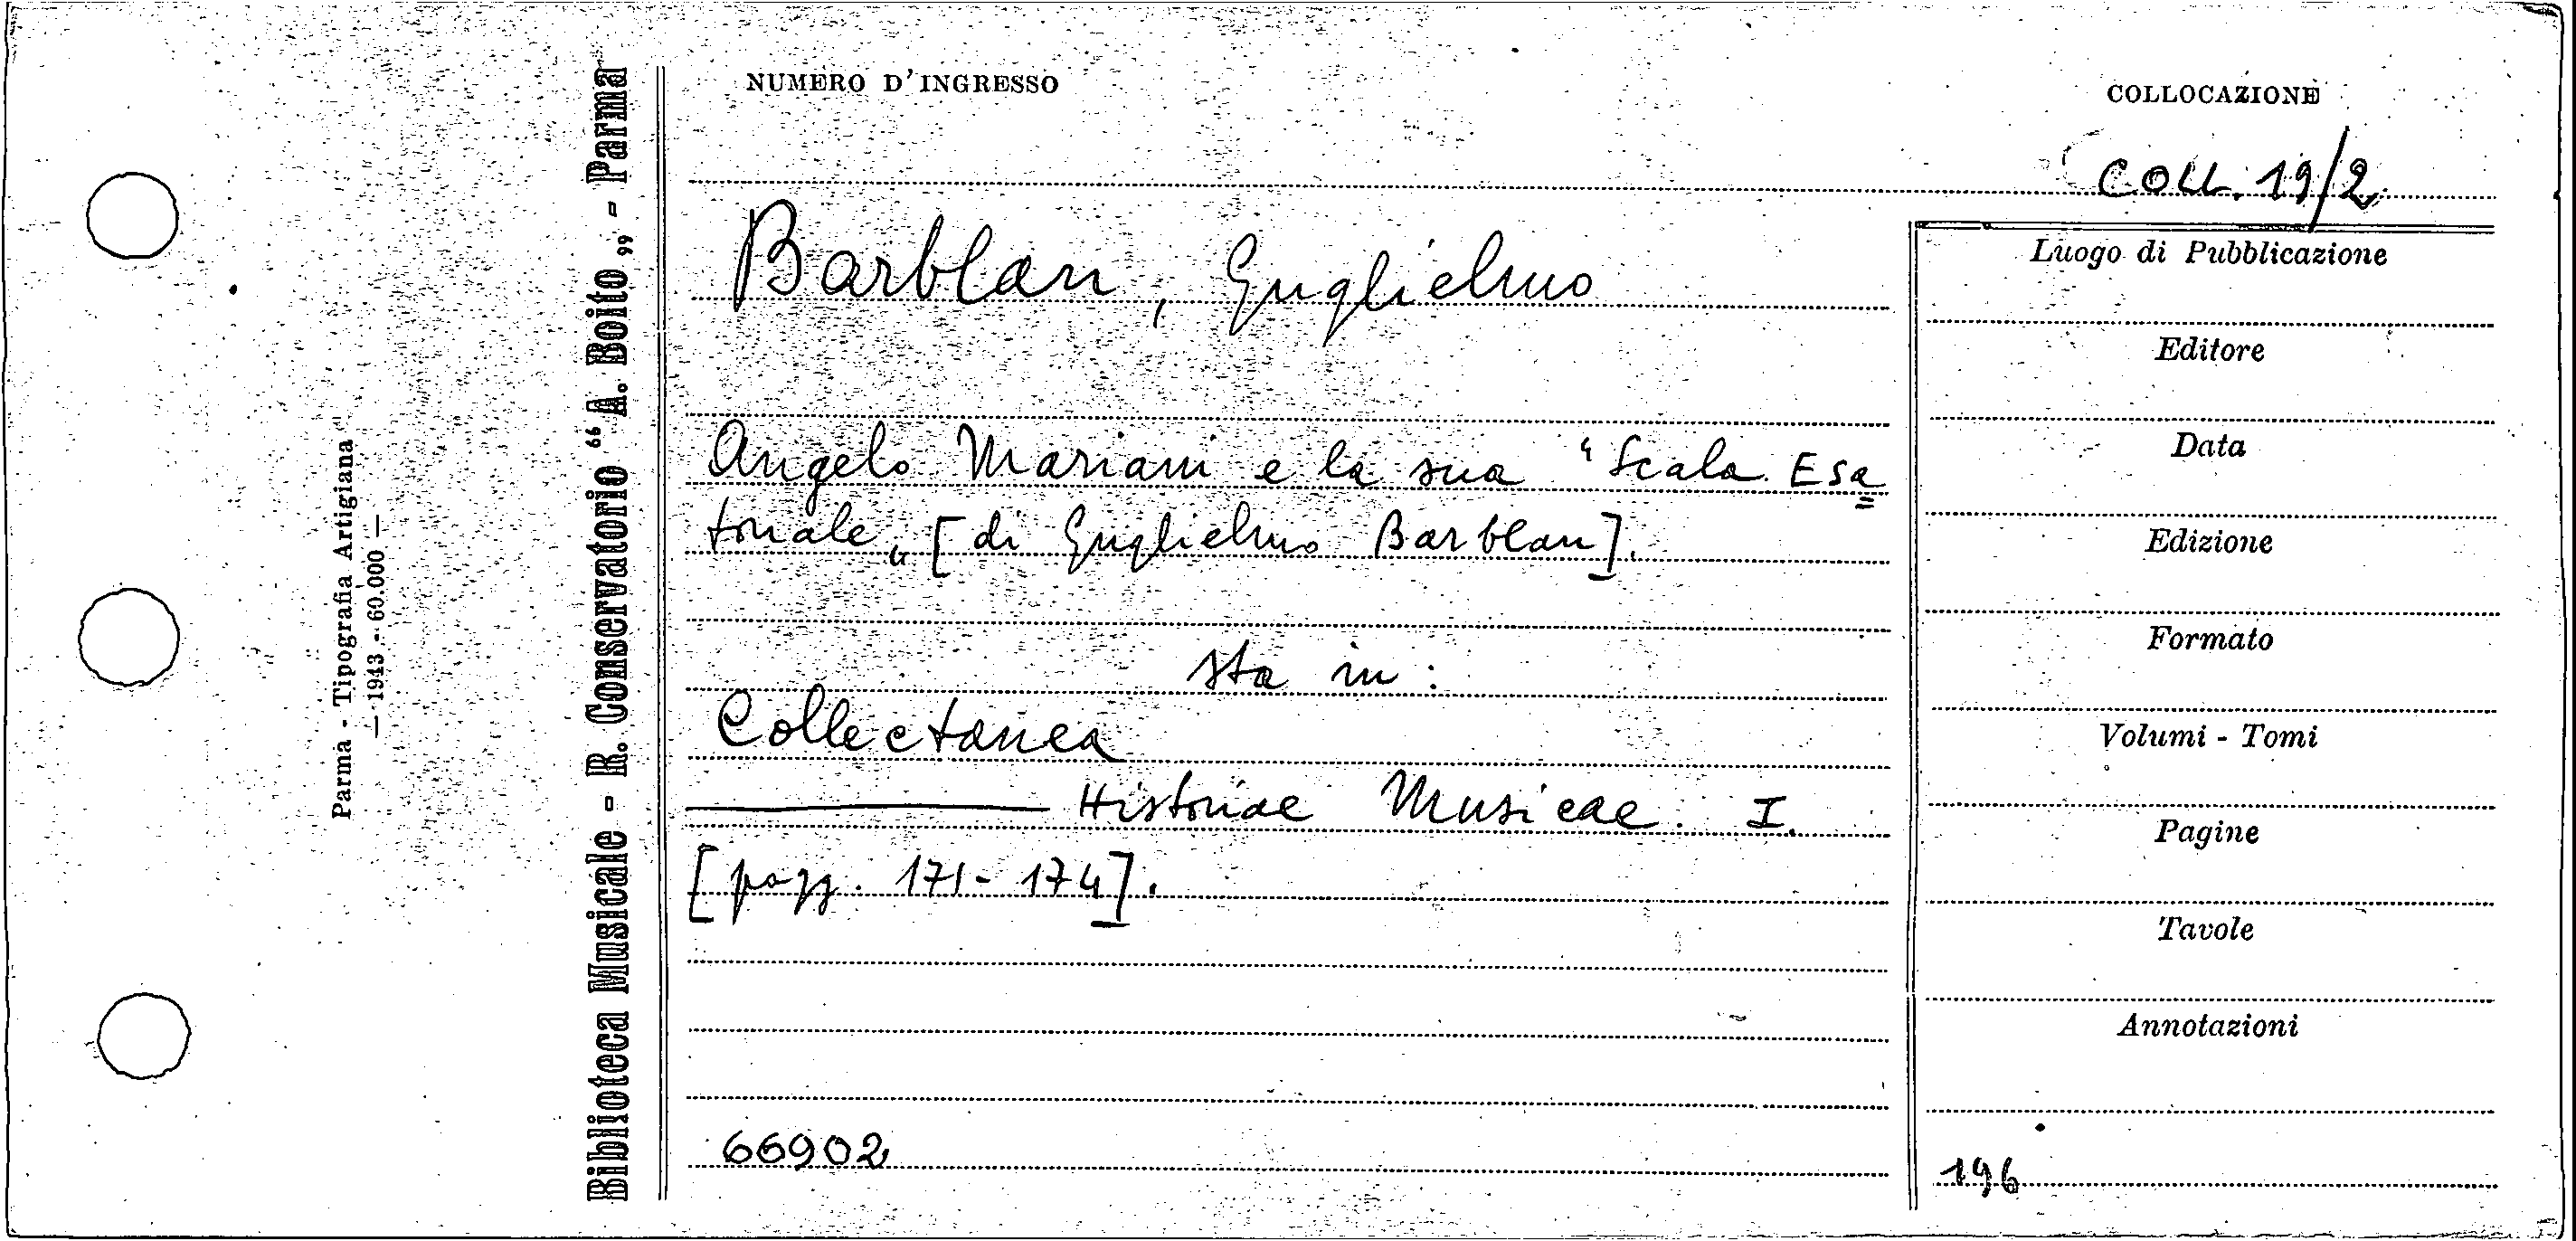 NUMERO D'INGRESSO
COLLOCAZIONE
COLL. 19/2
Barblan, Guglielmo
Angelo Mariani e la sua "Scala Esa=
tonale„ [di Guglielmo Barblan].
sta in:
Collectanea
——— Historiae Musicae. I.
[pagg. 171-174].
66902
Luogo di Pubblicazione
Editore
Data
Edizione
Formato
Volumi - Tomi
Pagine
Tavole
Annotazioni
196
Biblioteca Musicale - R. Conservatorio “A. Boito„ - Parma
Parma - Tipografia Artigiana
— 1943 - 60.000 —